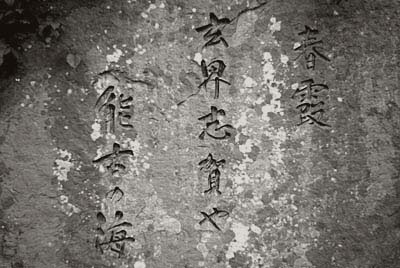 春霞
玄界志賀や
能古の海